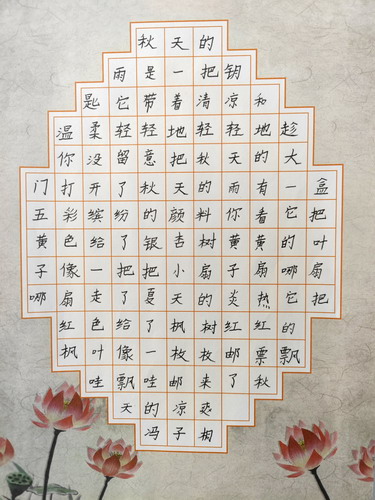 秋天的
雨是一把钥
匙它带着清凉和
温柔轻轻地轻轻地趁
你没留意把秋天的大
门打开了秋天的雨有一盒
五彩缤纷的颜料你看它把
黄色给了银杏树黄黄的叶
子像一把把小扇子扇哪扇
哪扇走了夏天的炎热它把
红色给了枫树红红的
枫叶像一枚枚邮票飘
哇飘哇邮来了秋
天的凉爽
冯子相